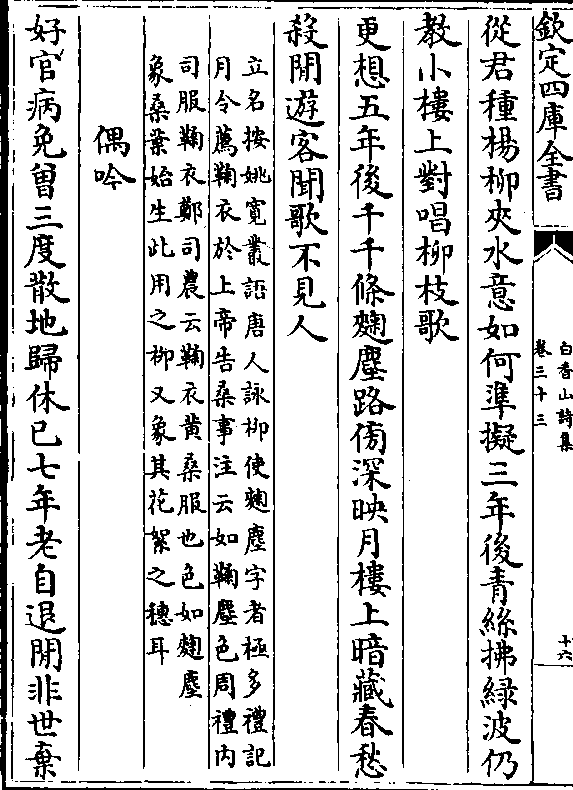 欽定四庫全書
白香山詩集
卷三十三
十六
從君種楊柳夾水意如何準擬三年後青絲拂緑波仍
教小樓上對唱柳枝歌
更想五年後千千條麴塵路傍深映月樓上暗藏春愁
殺閒遊客聞歌不見人
立名按姚寛叢語唐人詠柳使麴塵字者極多禮記
月令薦鞠衣於上帝告桑事注云如鞠塵色周禮内
司服鞠衣鄭司農云鞠衣黄桑服也色如麴塵
象桑葉始生此用之柳又象其花絮之穗耳
偶吟
好官病免曾三度散地歸休已七年老自退閒非世棄